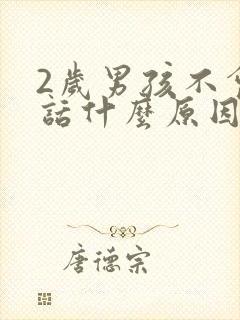 2歲男孩不
話什麼原因
唐德宗